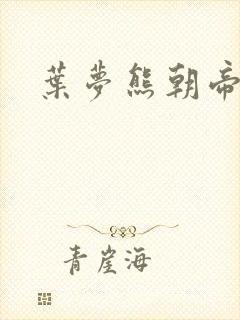 葉夢熊朝帝
青崖海